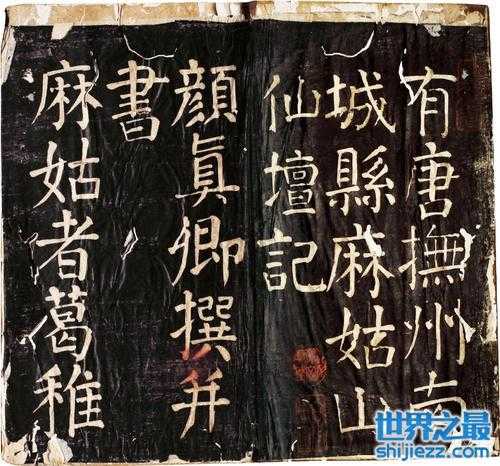 有唐撫州南
城縣麻姑山
仙壇記
顔真卿撰并
書
麻姑者葛稚
世界之最
shijiezz.com